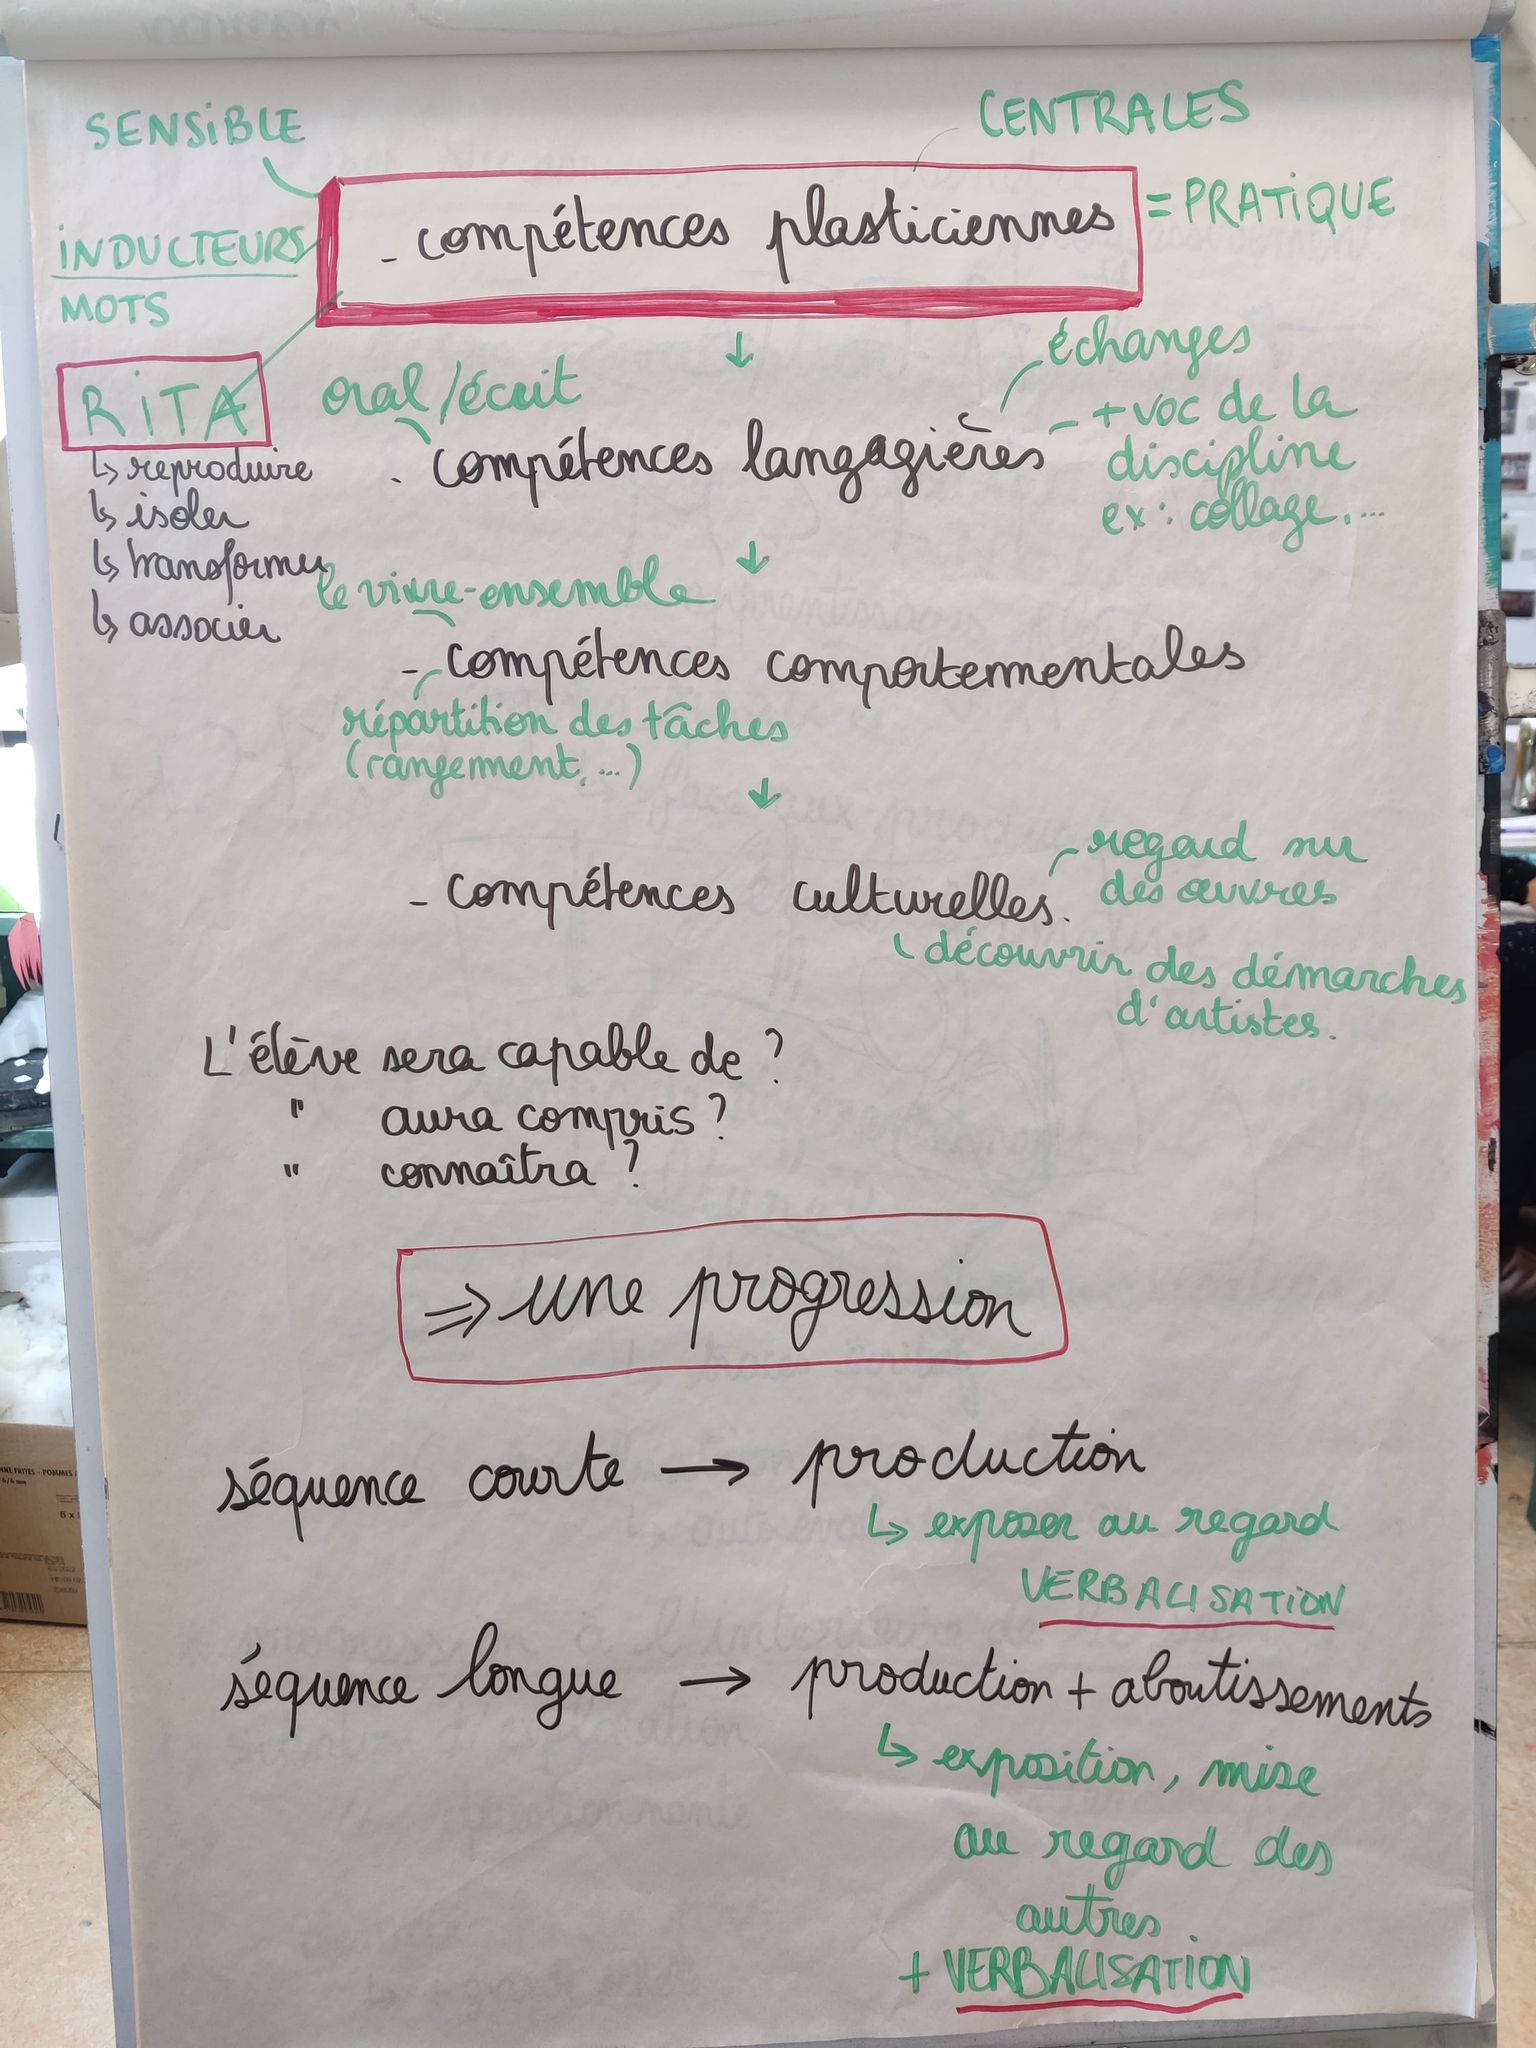 SENSIBLE
CENTRALES
- compétences plasticiennes
= PRATIQUE
INDUCTEURS
MOTS
RITA
↳ reproduire
↳ isoler
↳ transformer
↳ associer
↓
oral/écrit
échanges
- compétences langagières
- + voc de la
discipline
ex : collage, ...
↓
le vivre-ensemble
- compétences comportementales
répartition des tâches
(rangement, ...)
↓
- compétences culturelles.
regard sur
des œuvres
découvrir des démarches
d'artistes.
L'élève sera capable de ?
" aura compris ?
" connaîtra ?
⇒ une progression
séquence courte → production
↳ exposer au regard
VERBALISATION
séquence longue → production + aboutissements
↳ exposition, mise
au regard des
autres
+ VERBALISATION